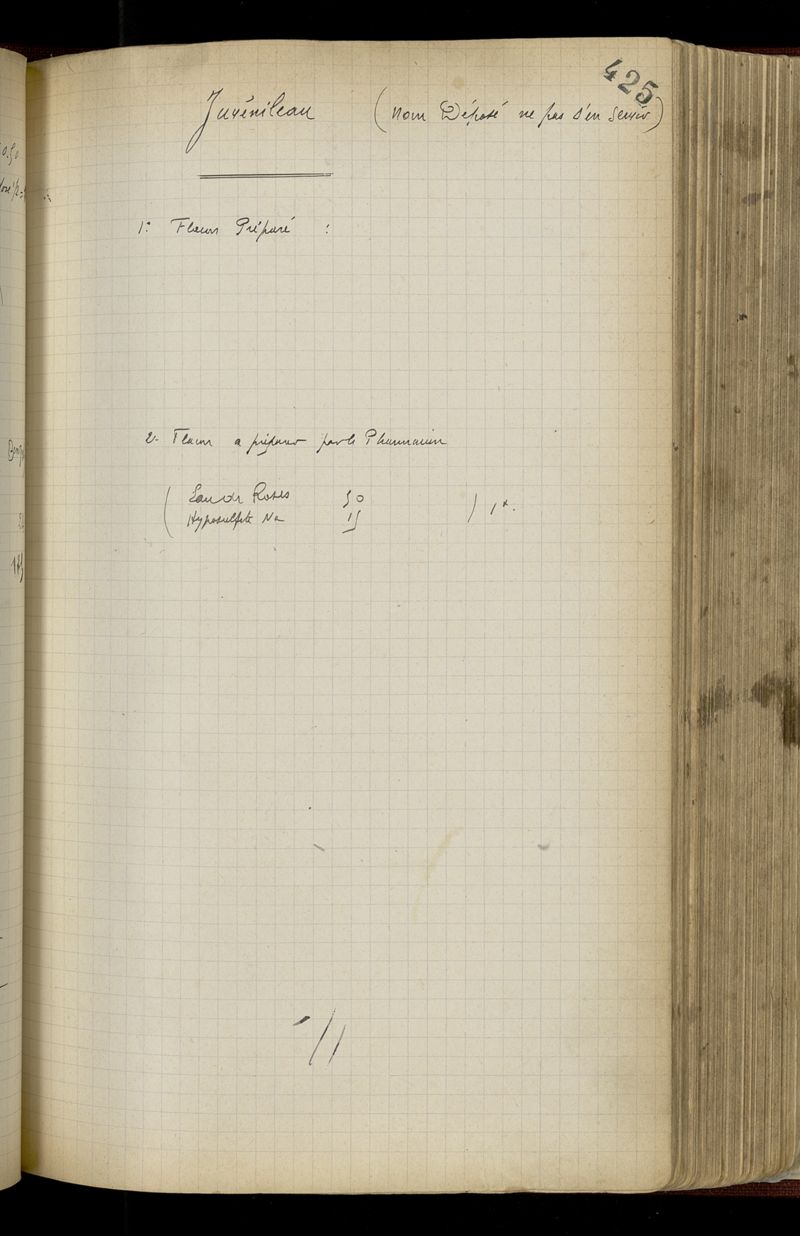 425
Juvénileau (Nom Déposé ne pas s'en servir)
1° Flacon Préparé :
2. Flacon a préparer par le Pharmacien
( Eau de Roses 50
Hyposulfite Na 15 ) 1